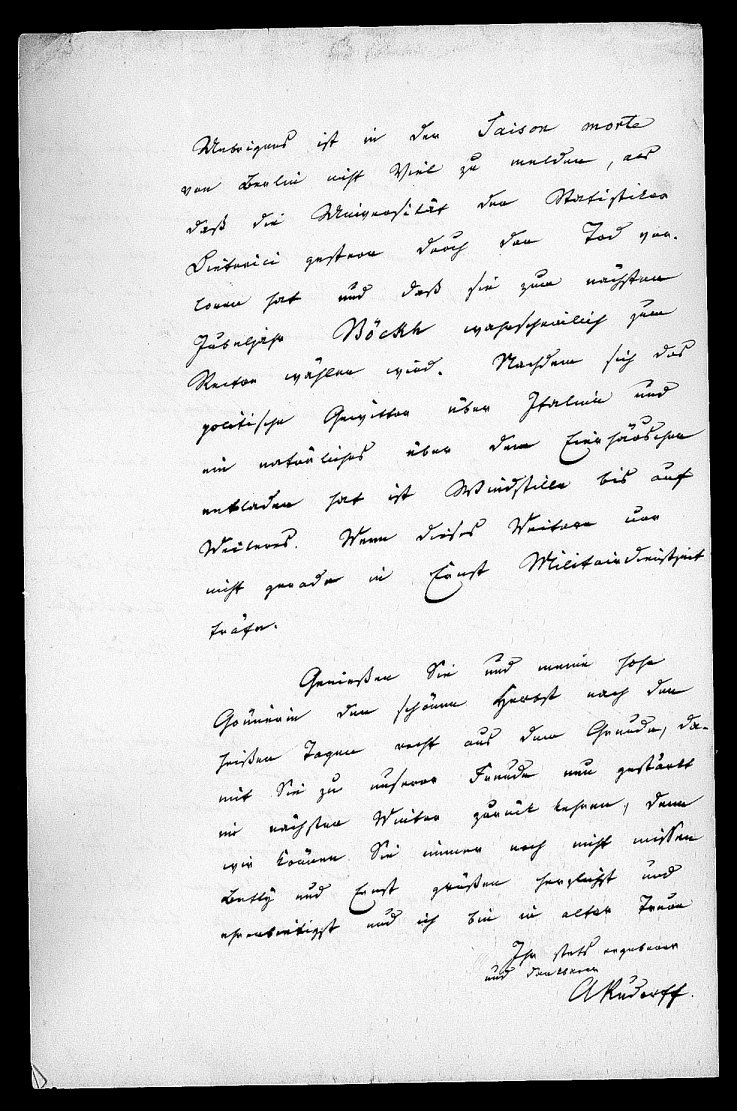 Uebrigens ist in der Saison morte
von Berlin nicht Viel zu melden, als
daß die Universität den Statistiker
Dieterici gestern durch den Tod ver-
loren hat und daß sie zum nächsten
Jubeljahr Böckh wahrscheinlich zum
Rector wählen wird. Nachdem sich das
politische Gewitter über Italien und
ein natürliches über dem
entladen hat ist Windstille bis auf
Weiteres. Wenn dieses Weitere nur
nicht gerade in Ernst Militairdienstzeit
träfe.
Genießen Sie und meine hohe
Gönnerin den schönen Herbst nach den
heißen Tagen recht aus dem Grunde, da-
mit Sie zu unserer Freude neu gestärkt
im nächsten Winter zurück kehren, denn
wir können Sie immer noch nicht missen
Betty und Ernst grüßen herzlichst und
ehrerbietigst und ich bin in alter Treue
Ihr stets ergebener
und dankbarer
ARudorff.